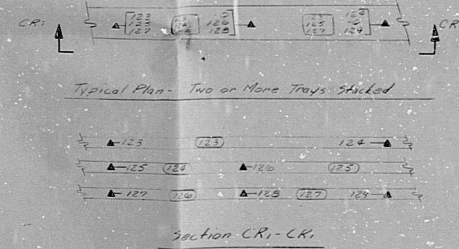 CR1 123 123 124 CR
125 125
127 128 127 129
Typical Plan - Two or More Trays Stacked
123 (123) 124
125 (124) 126 (125)
127 (126) 128 (127) 129
Section CR1-CR1